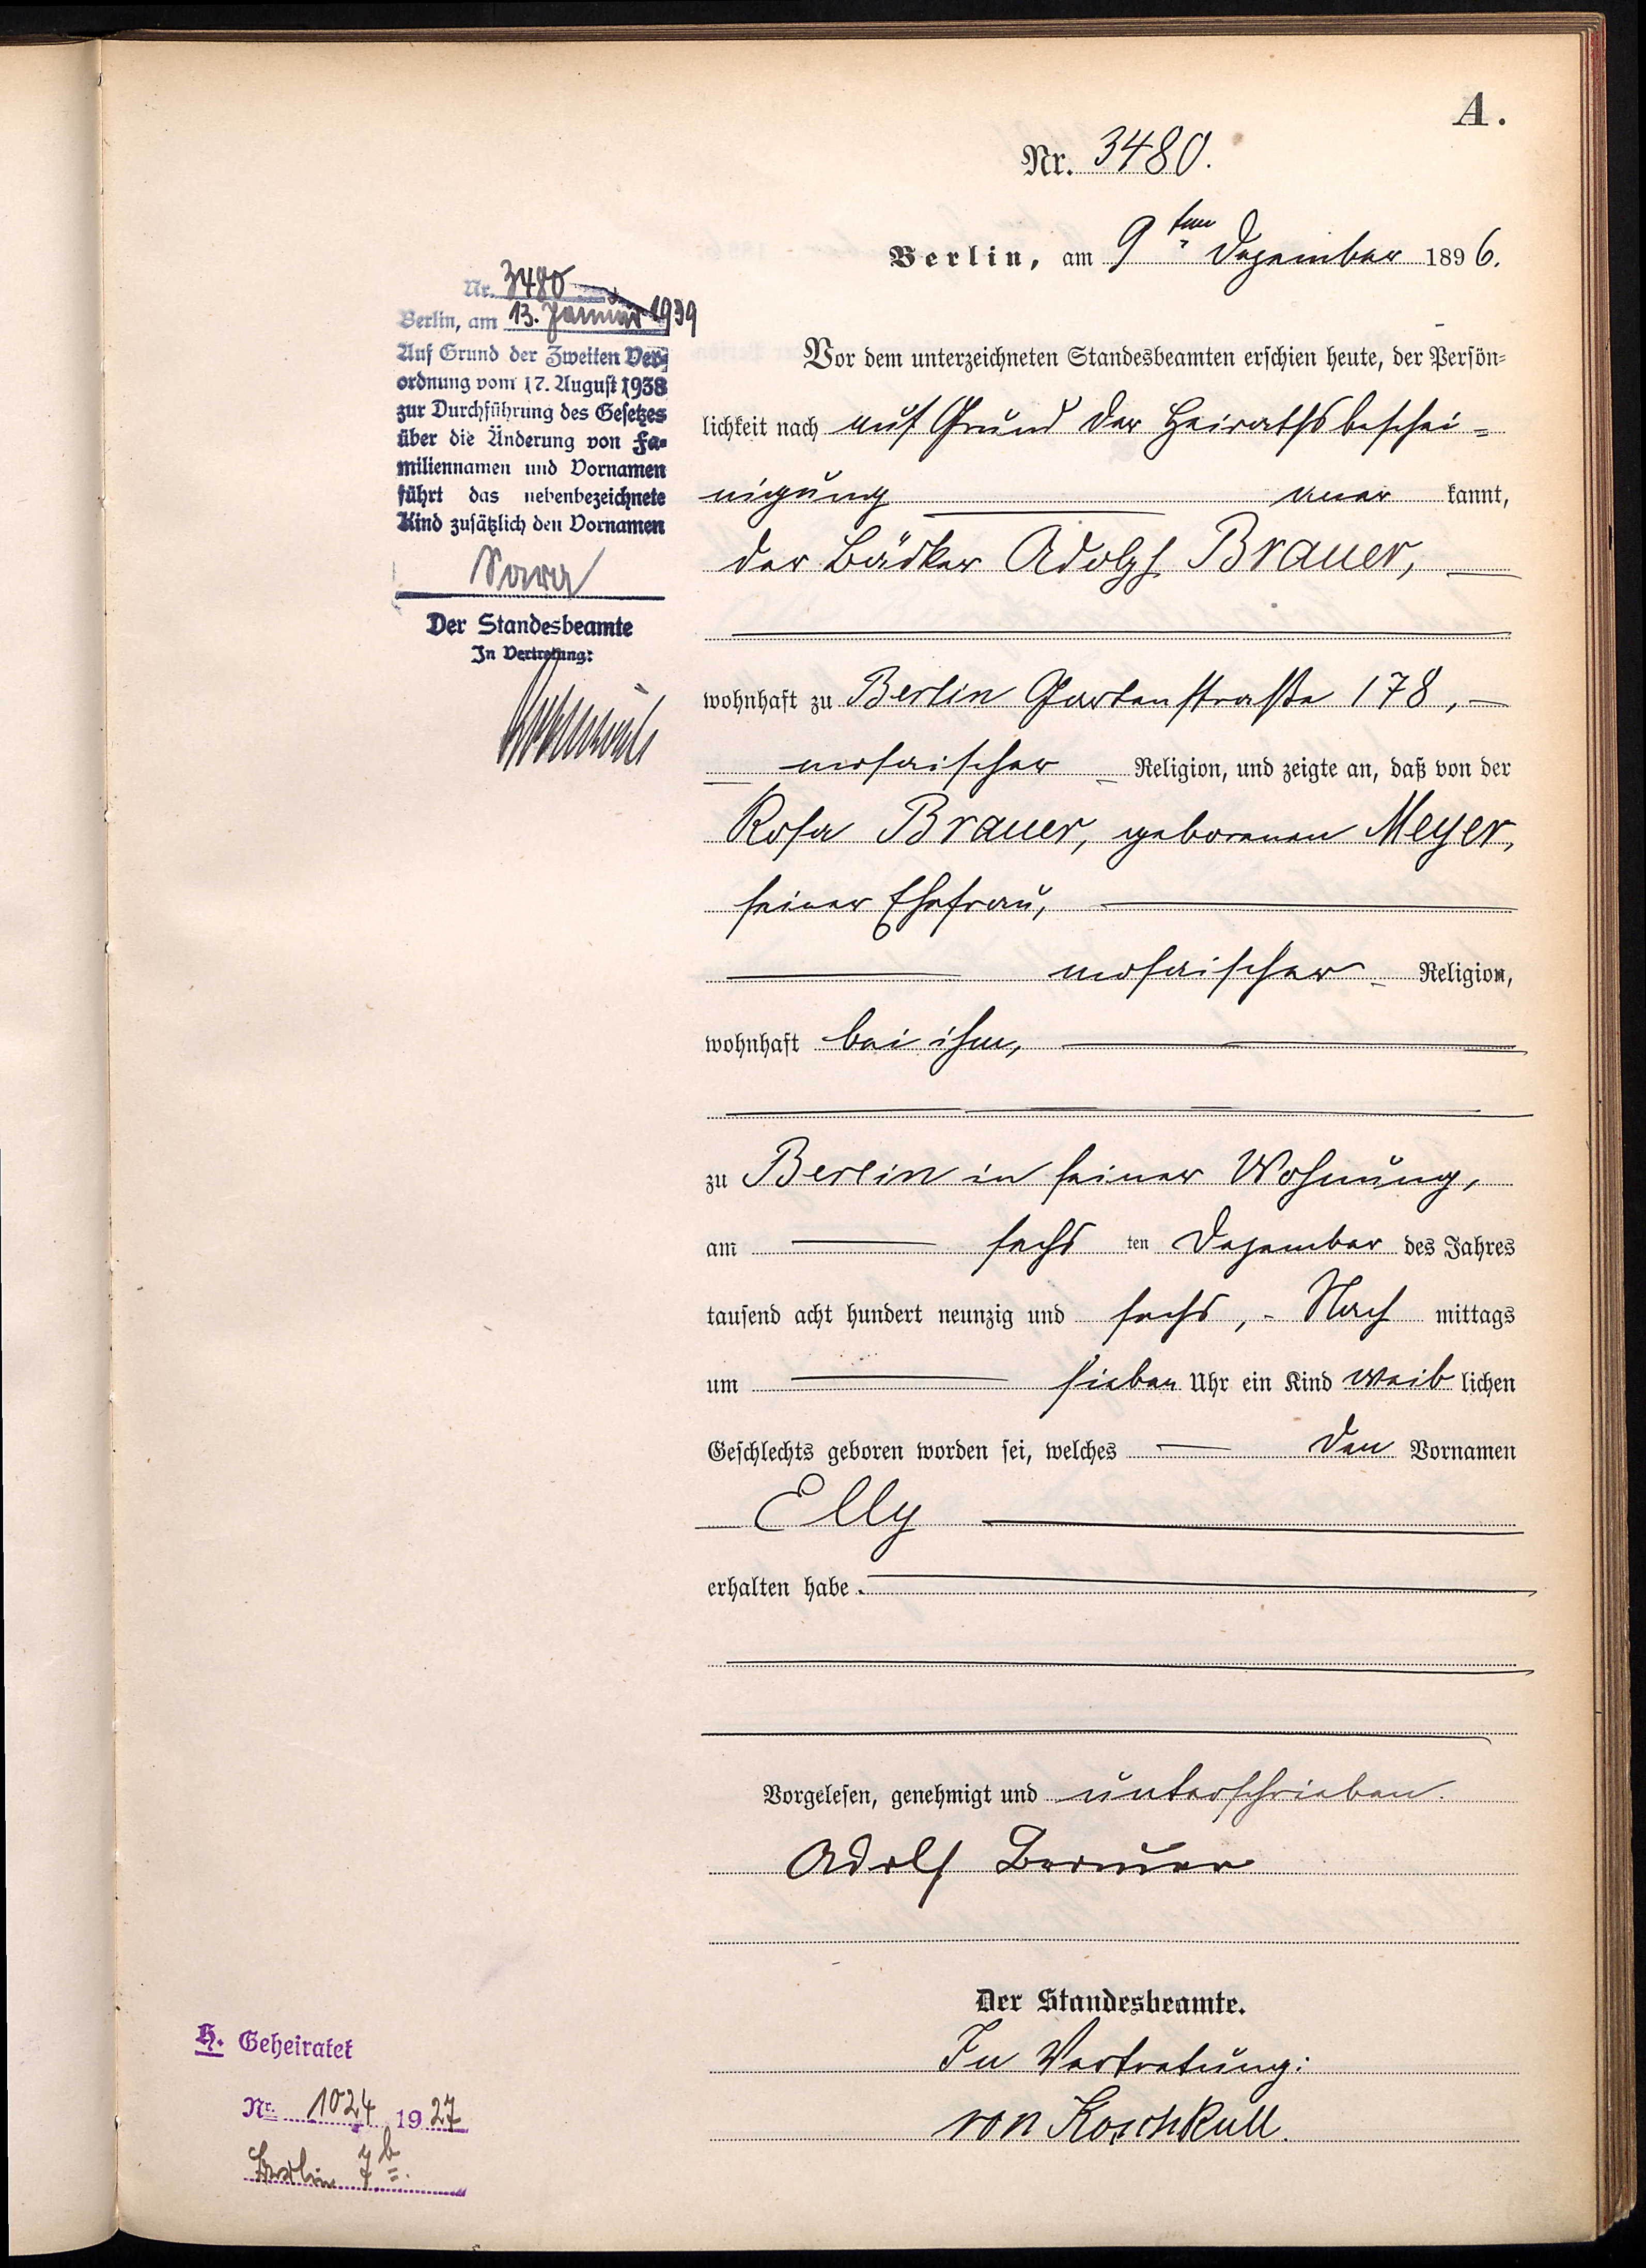 A.
Nr. 3480.
Berlin, am 9ten Dezember 1896.
Vor dem unterzeichneten Standesbeamten erschien heute, der Persön-
lichkeit nach auf Grund der Heirathsbeschei-
nigung aner kannt,
der Bäcker Adolph Brauer,
wohnhaft zu Berlin Gartenstraße 178,
mosaischer Religion, und zeigte an, daß von der
Rosa Brauer, geborenen Meyer,
seiner Ehefrau,
mosaischer Religion,
wohnhaft bei ihm,
zu Berlin in seiner Wohnung,
am sechs ten Dezember des Jahres
tausend acht hundert neunzig und sechs, Nach mittags
um sieben Uhr ein Kind weib lichen
Geschlechts geboren worden sei, welches den Vornamen
Elly
erhalten habe.
Vorgelesen, genehmigt und unterschrieben.
Adolf Brauer
Der Standesbeamte.
In Vertretung:
von Koschkull.
Nr. 3480
Berlin, am 13. Januar 1939
Auf Grund der Zweiten Ver-
ordnung vom 17. August 1938
zur Durchführung des Gesetzes
über die Änderung von Fa-
miliennamen und Vornamen
führt das nebenbezeichnete
Kind zusätzlich den Vornamen
Sara
Der Standesbeamte
In Vertretung:
H. Geheiratet
Nr. 1024 1927
Berlin 7b.